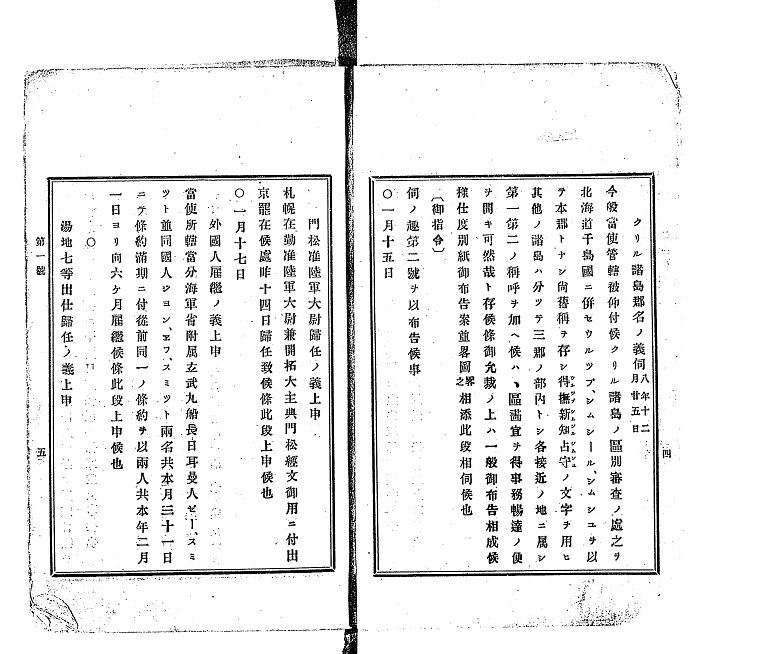 四
クリル諸島郡名ノ義伺 八年十二月廿五日
今般當使管轄被仰付候クリル諸島ノ區別審査ノ處之ヲ
北海道千島國ニ併セウルツプ、シムシール、シムシユサ以
テ本郡トナシ尚舊稱ヲ存シ得撫新知占守ノ文字ヲ用ヒ
其他ノ諸島ハ分ツテ三郡ノ部内トシ各接近ノ地ニ属シ
第一第二ノ稱呼ヲ加ヘ候ハヽ區畫宜ヲ得事務暢達ノ便
ヲ開キ可然哉ト存候條御允裁ノ上ハ一般御布告相成候
様仕度別紙御布告案並畧圖畧之相添此段相伺候也
〔御指令〕
伺ノ趣第二號ヲ以布告候事
〇一月十五日
門松准陸軍大尉歸任ノ義上申
札幌在勤准陸軍大尉兼開拓大主典門松經文御用ニ付出
京罷在候處昨十四日歸任致候條此段上申候也
〇一月十七日
外國人雇繼ノ義上申
當使所轄當分海軍省附属玄武丸船長日耳曼人ゼー、スミ
ツト並同國人ジヨン、エフ、スミツト兩名共本月三十一日
ニテ條約滿期ニ付從前同一ノ條約ヲ以兩人共本年二月
一日ヨリ向六ケ月雇繼候條此段上申候也
〇
湯地七等出仕歸任ノ義上申
第一號
五